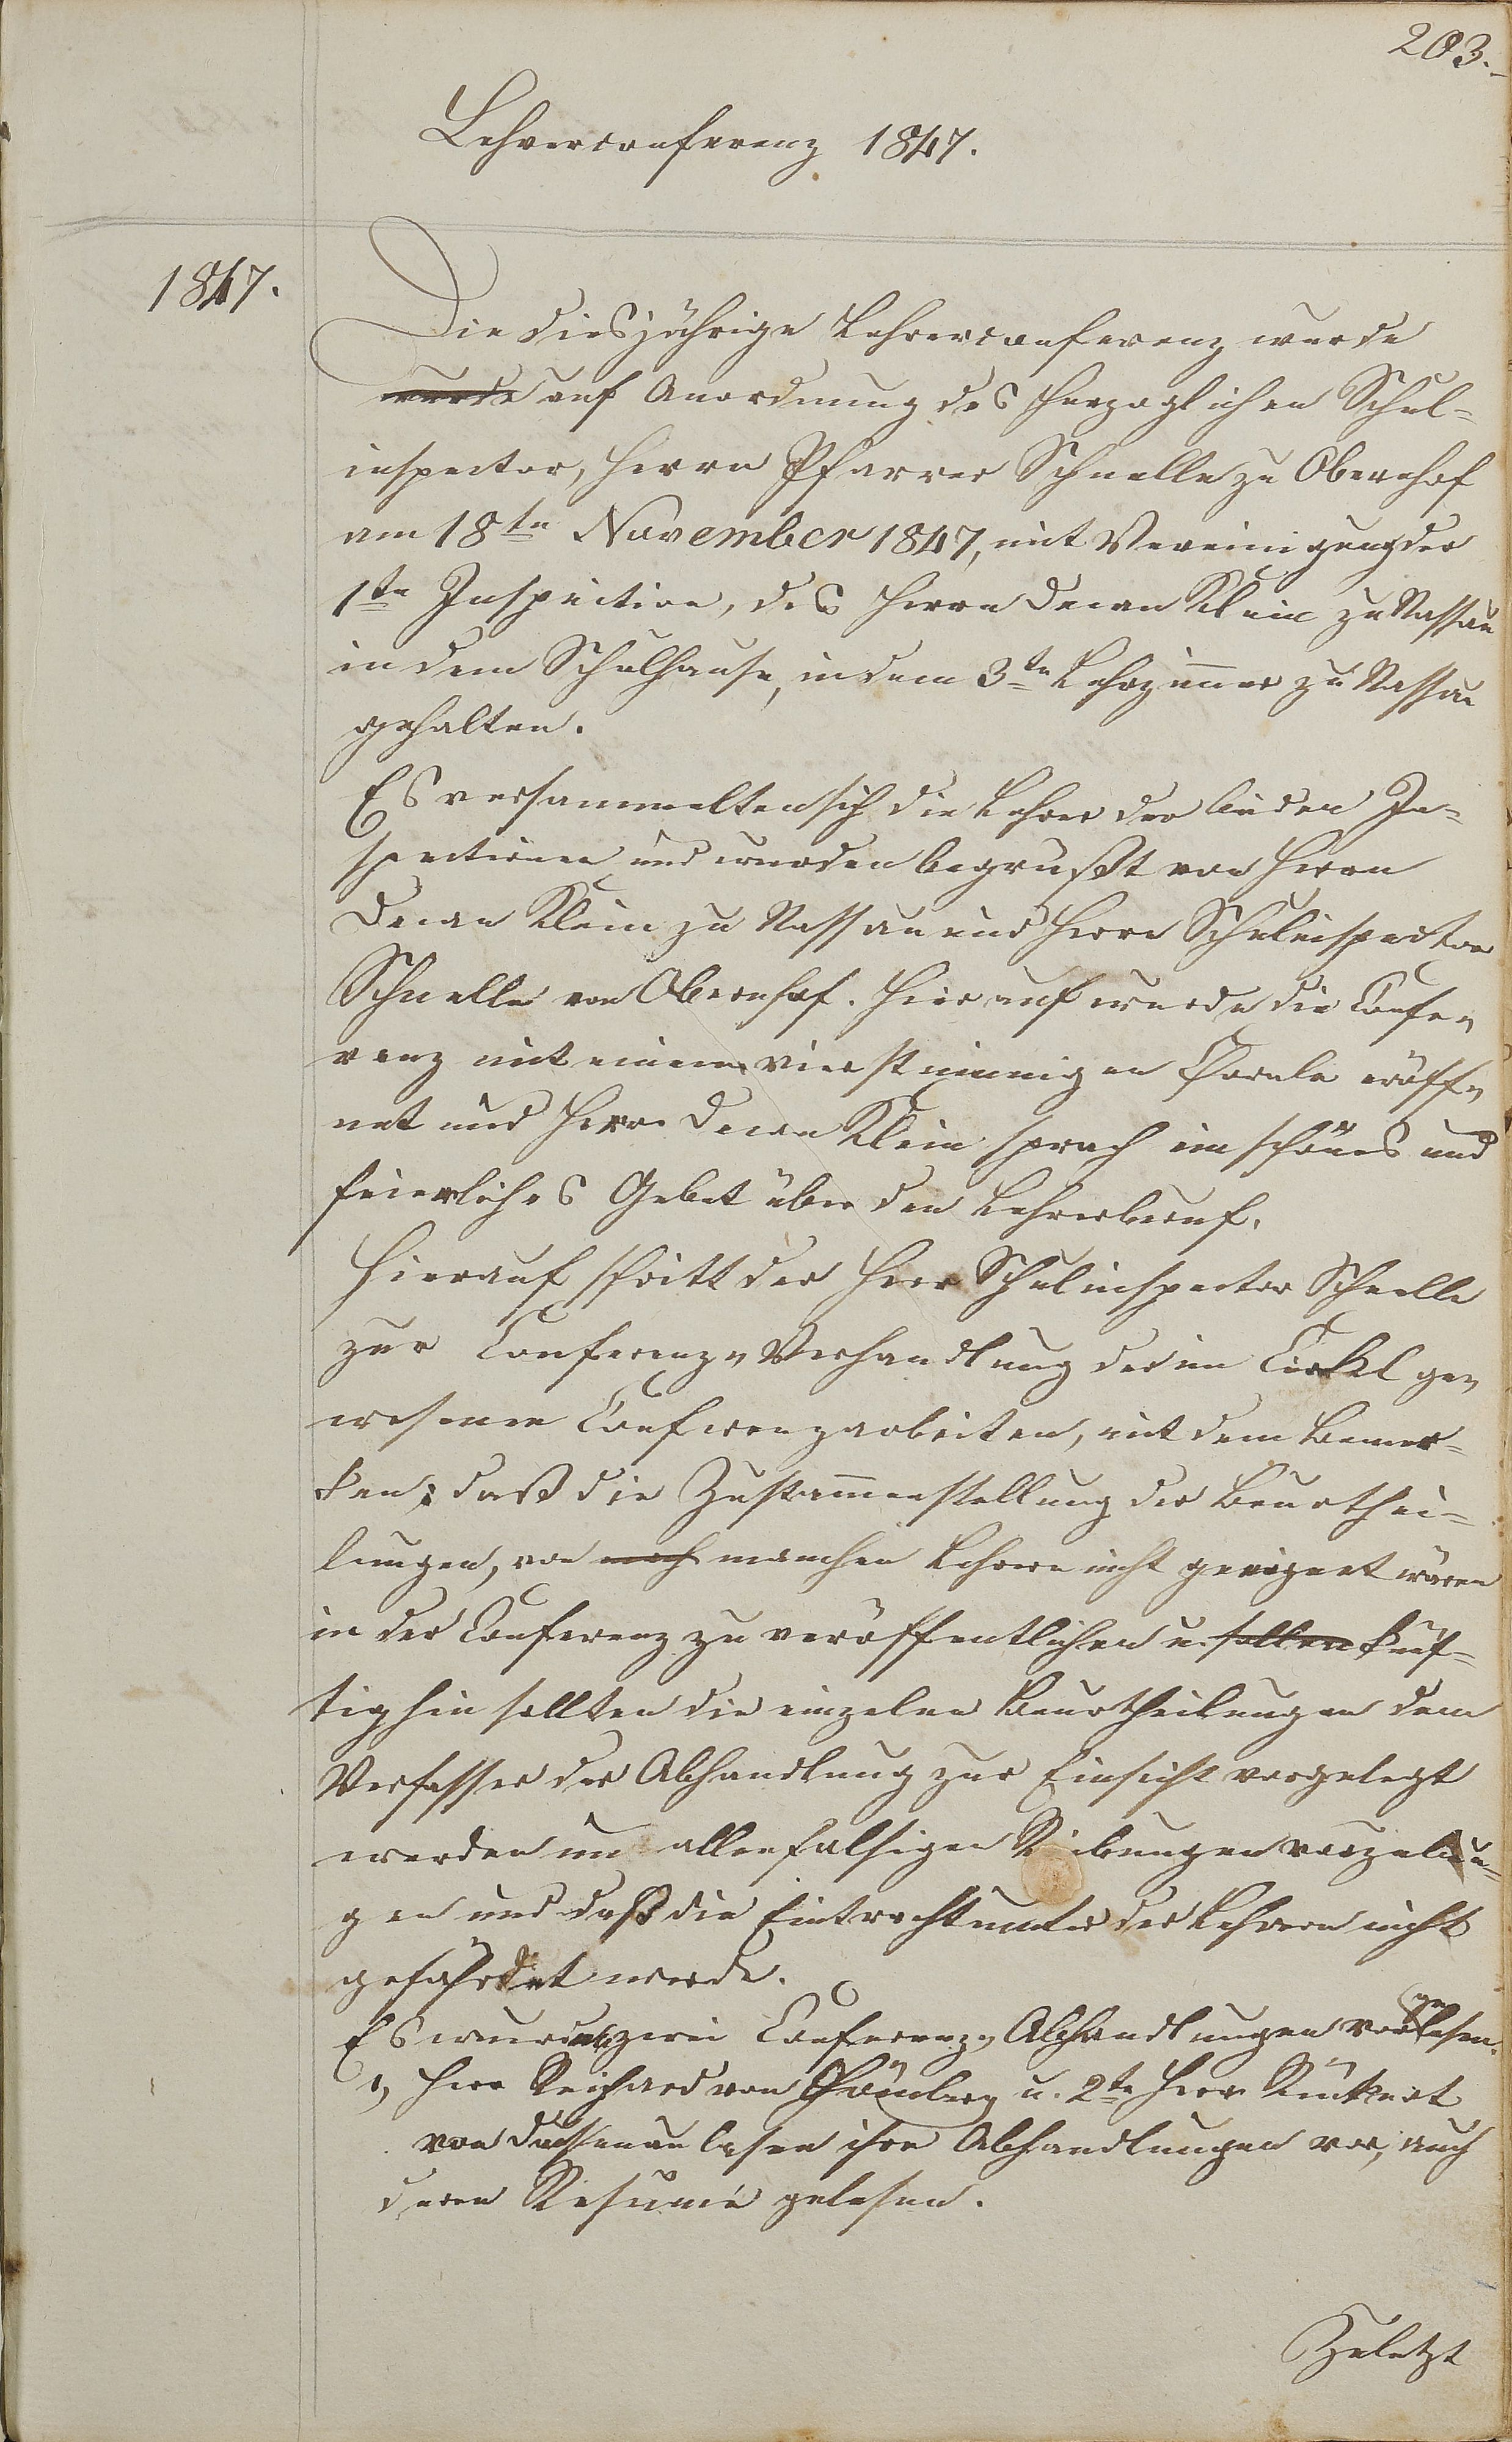 203.
Lehrerconferenz 1847.
1847.
Die diesjährige Lehrerconferenz wurde
wurde auf Anordnung des Herzoglichen Schul-
inspector, Herrn Pfarrer Schnelle zu Obernhof
am 18ten November 1847, mit Vereinigung der
1ten Inspection, des Herrn Decan Klein zu Nassau
in dem Schulhause, in dem 3ten Lehrzimmer zu Nassau
gehalten.
Es versammelten sich die Lehrer der beiden In-
spectionen und wurden begrüßt von Herrn
Decan Klein zu Nassau und Herrn Schulinspector
Schnelle von Obernhof. Hierauf wurde die Confe-
renz mit einem vierstimmigen Chorale eröff-
net und Herr Decan Klein sprach ein schönes und
feierliches Gebet über den Lehrerberuf.
Hierauf schritt der Herr Schulinspector Schnelle
zur Conferenz-Verhandlung der im Cirkel ge-
wesenen Conferenzarbeiten, mit dem Bemer-
ken; daß die Zusammenstellung der Beurthei-
lungen, von noch manchen Lehrern nicht geeignet wären
in der Conferenz zu veröffentlichen u. sollen künf-
tighin sollten die einzelnen Beurtheilungen dem
Verfasser der Abhandlung zur Einsicht vorgelegt
werden um allenfalsigen Reibungen vorzubeu-
gen und daß die Eintracht unter der Lehrern nicht
gefährdet werde.
Es wurden zwei Conferenz-Abhandlungen vorgelesen.
1, Herr Reichard von Schönberg u. 2te Herr Rückert
von Dausenau lasen ihre Abhandlungen vor, auch
deren Resumé gelesen.
Zuletzt